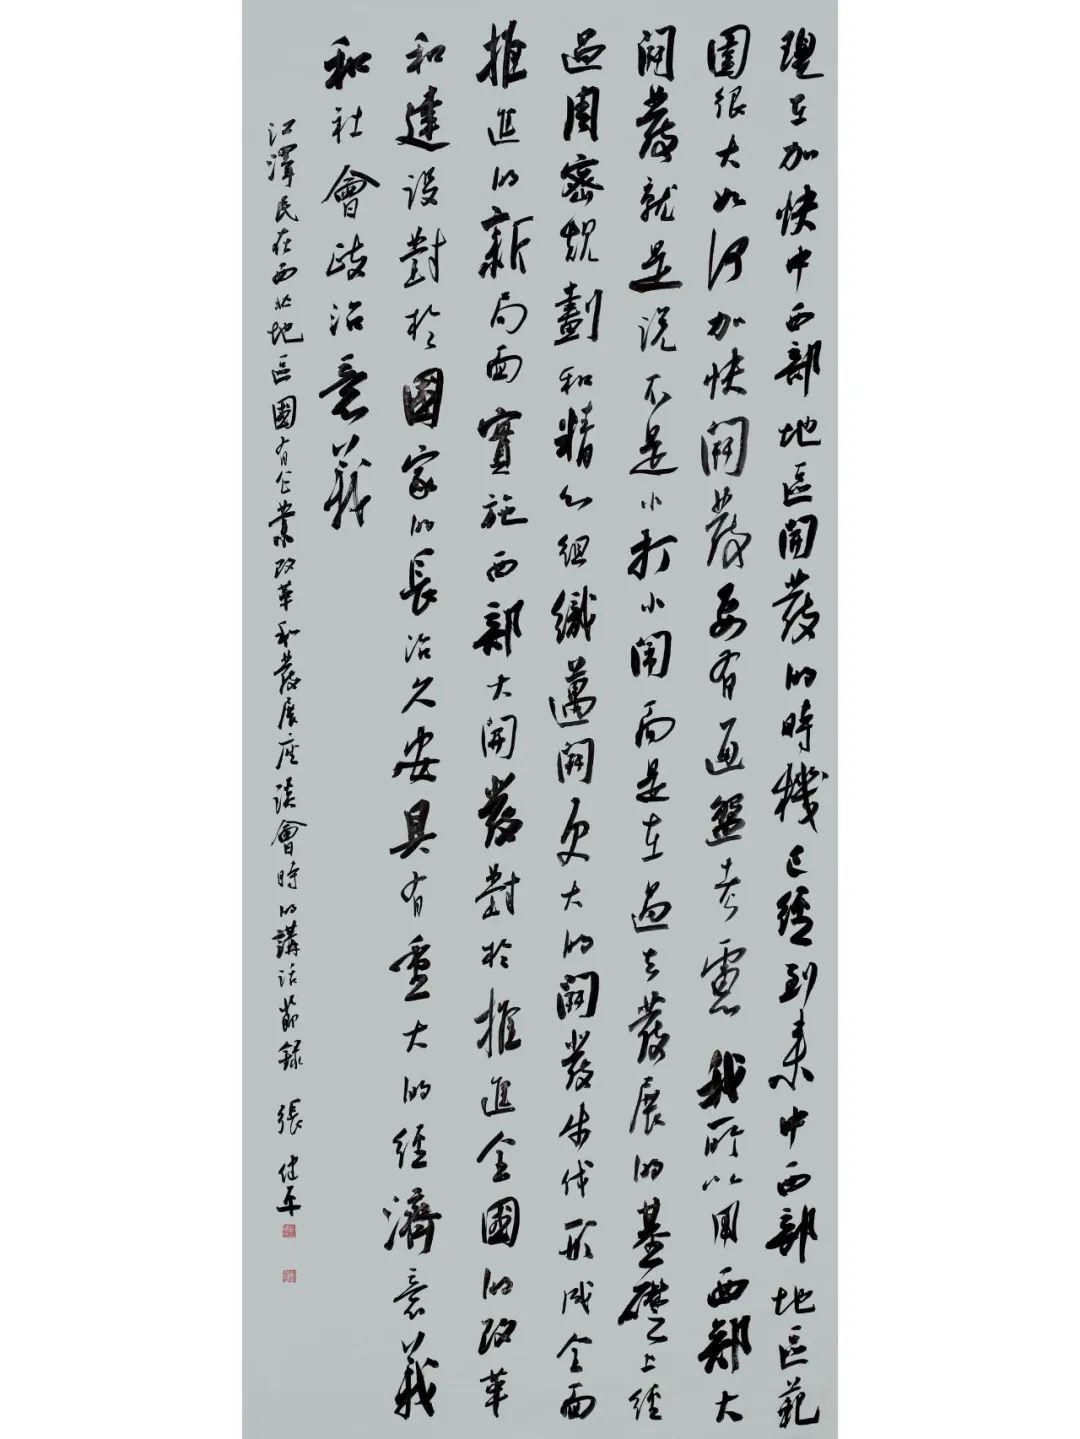 現在加快中西部地區開發的時機已經到來中西部地區範
圍很大如何加快開發要有通盤考慮我所以用西部大
開發就是說不是小打小鬧而是在過去發展的基礎上經
過周密規劃和精心組織邁開更大的開發步伐形成全面
推進的新局面實施西部大開發對於推進全國的改革
和建設對於國家的長治久安具有重大的經濟意義
和社會政治意義
江澤民在西北地區國有企業改革和發展座談會時的講話節錄 張